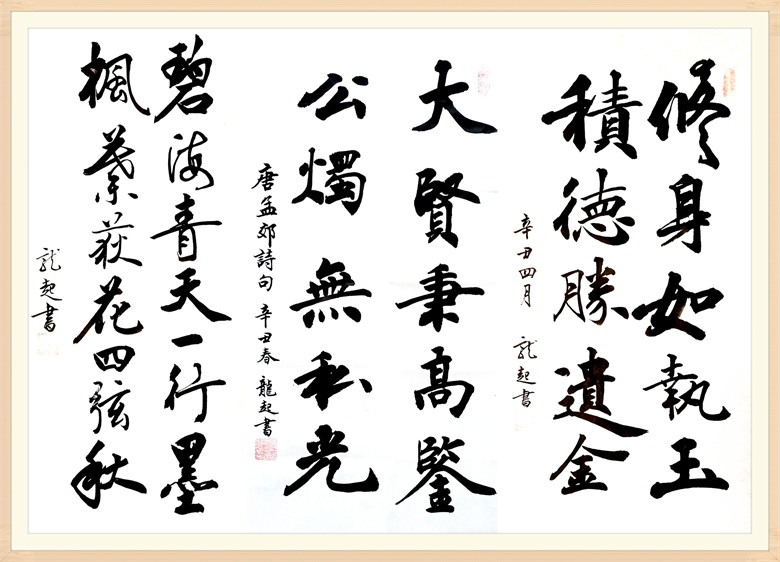 修身如執玉
積德勝遺金
辛丑四月 龍起書
大賢秉高鑒
公燭無私光
唐孟郊詩句 辛丑春 龍起書
碧海青天一行墨
楓葉荻花四弦秋
龍起書